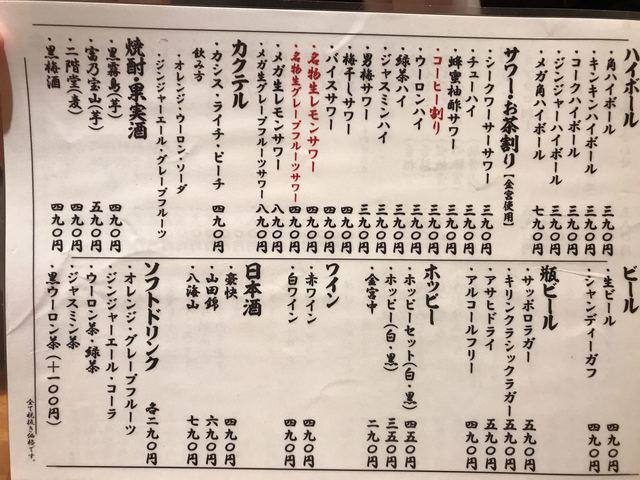 ハイボール
・角ハイボール 三九〇円
・キンキンハイボール 三九〇円
・コークハイボール 三九〇円
・ジンジャーハイボール 三九〇円
・メガ角ハイボール 七九〇円
サワー・お茶割り[金宮使用]
・シークワーサーサワー 三九〇円
・蜂蜜柚酢サワー 三九〇円
・チューハイ 三九〇円
・コーヒー割り 三九〇円
・ウーロンハイ 三九〇円
・緑茶ハイ 三九〇円
・ジャスミンハイ 三九〇円
・男梅サワー 三九〇円
・梅干しサワー 四九〇円
・バイスサワー 四九〇円
・名物生レモンサワー 四九〇円
・名物生グレープフルーツサワー 四九〇円
・メガ生レモンサワー 八九〇円
・メガ生グレープフルーツサワー 八九〇円
カクテル
・カシス・ライチ・ピーチ 四九〇円
飲み方
・オレンジ・ウーロン・ソーダ
・ジンジャーエール・グレープフルーツ
焼酎・果実酒
・黒霧島(芋) 四九〇円
・富乃宝山(芋) 五九〇円
・二階堂(麦) 四九〇円
・黒梅酒 四九〇円
ビール
・生ビール 四九〇円
・シャンディーガフ 四九〇円
瓶ビール
・サッポロラガー 五九〇円
・キリンクラシックラガー 五九〇円
・アサヒドライ 五九〇円
・アルコールフリー 四九〇円
ホッピー
・ホッピーセット(白・黒) 四五〇円
・ホッピー(白・黒) 三五〇円
・金宮中 二九〇円
ワイン
・赤ワイン 四九〇円
・白ワイン 四九〇円
日本酒
・豪快 四九〇円
・山田錦 六九〇円
・八海山 七九〇円
ソフトドリンク 各二九〇円
・オレンジ・グレープフルーツ
・ジンジャーエール・コーラ
・ウーロン茶・緑茶
・ジャスミン茶
・黒ウーロン茶(+一〇〇円)
全て税抜き価格です。